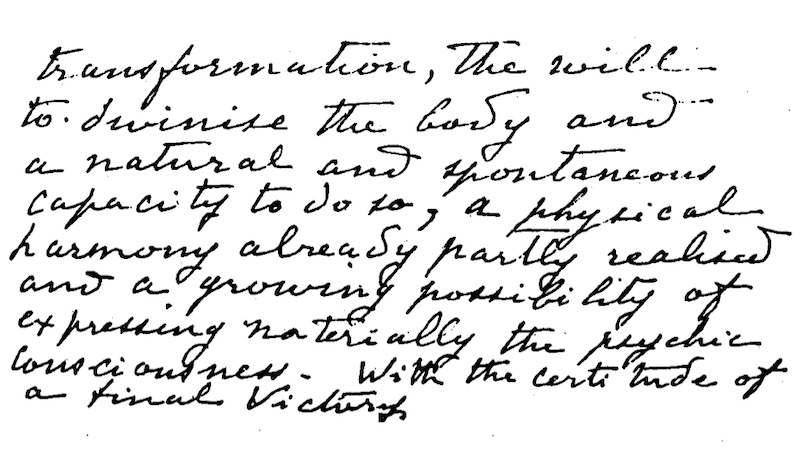 transformation, the will
to divinise the body and
a natural and spontaneous
capacity to do so, a physical
harmony already partly realised
and a growing possibility of
expressing materially the psychic
consciousness. With the certitude of
a final Victory